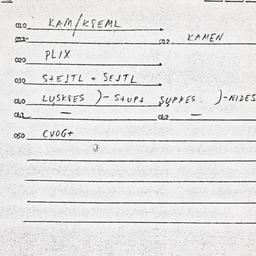 010 KAM/KREML
011 012 KAMEN
020 PLIX
030 STEJTL = SEJTL
040 LUSKRES )- STUPS SUPKES. )-NIDES
041 — 042 —
050 CVOGT